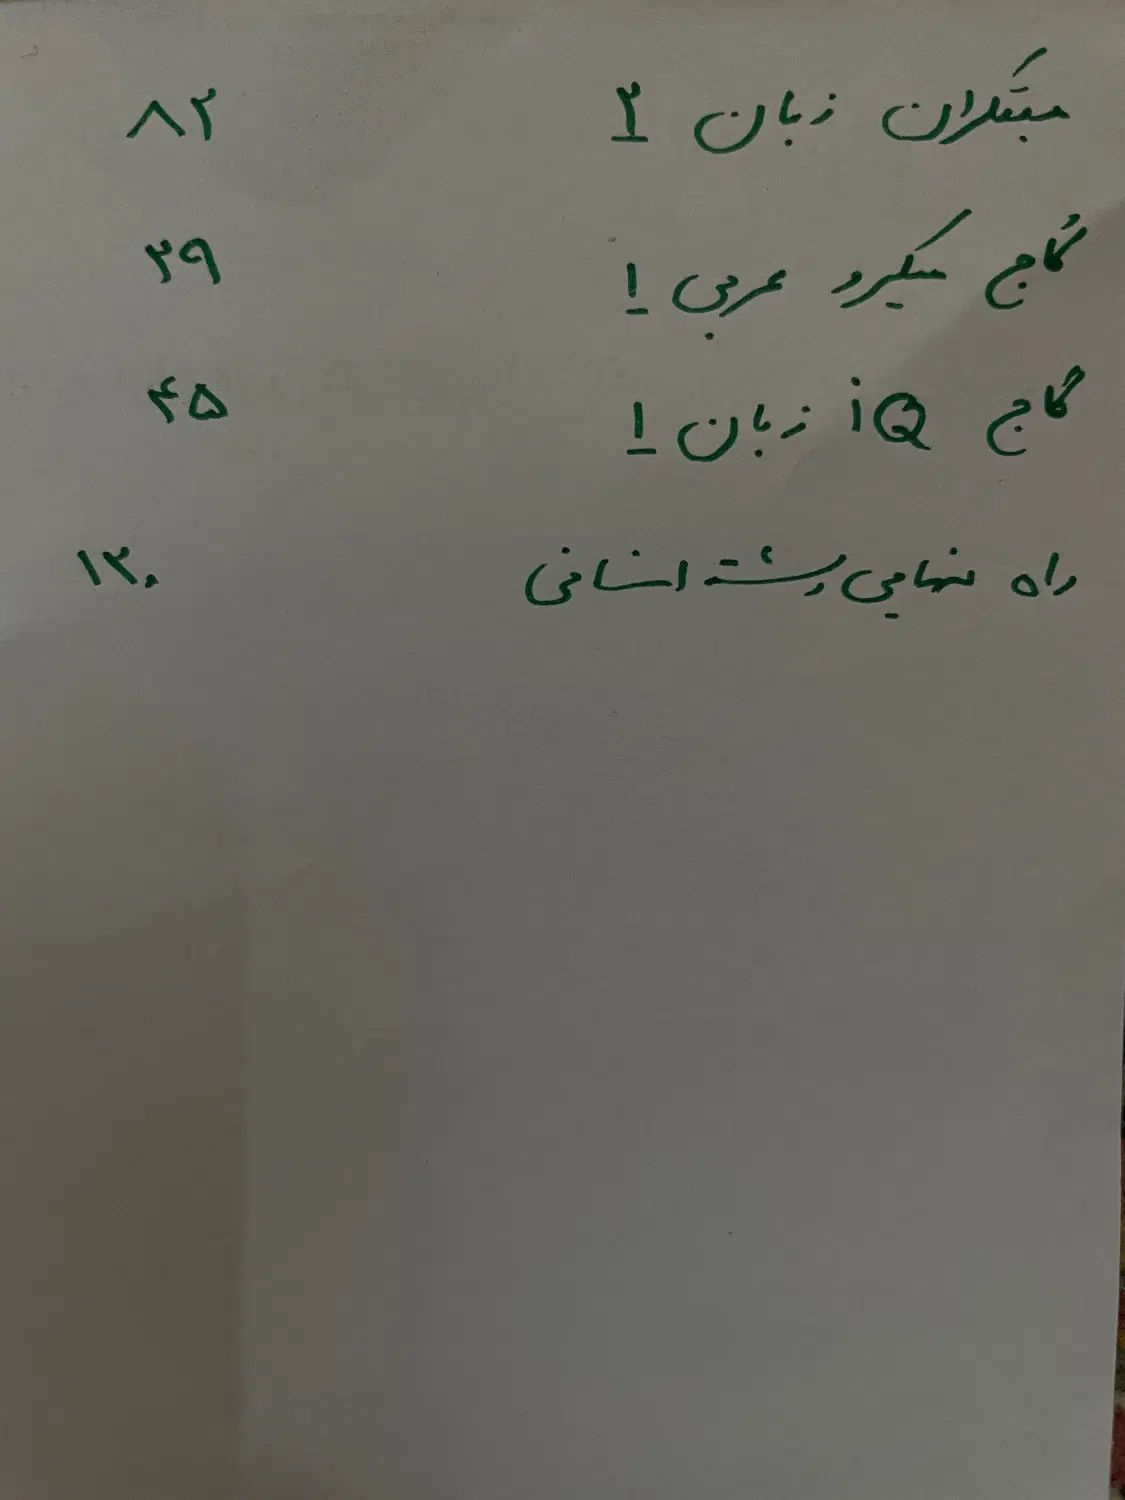 مبتکران زبان ۲ ۸۲
گاج میکرو عربی ۱ ۳۹
گاج iQ زبان ۱ ۴۵
راه نهایی رشته انسانی ۱۳۰